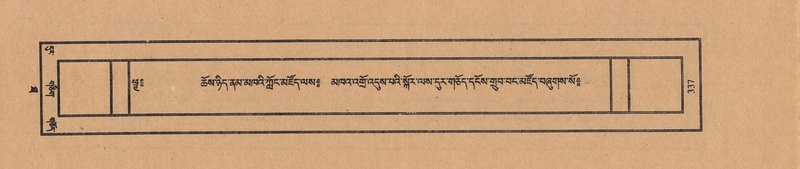 ཆོས་ཉིད་ནམ་མཁའི་ཀློང་མཛོད་ལས༔ མཁའ་འགྲོ་འདུས་པའི་སྐོར་ལས་དུར་གཅོད་དངོས་གྲུབ་བང་མཛོད་བཞུགས་སོ༔
337